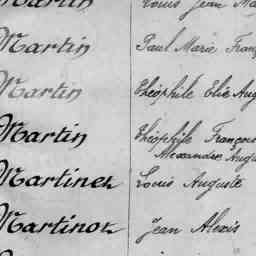 Martin Louis Jean Ma
Martin Paul Marie Franç
Martin Théophile Elie Aug
Martin Théophile Françoi
Alexandre Augu
Martinet Louis Auguste
Martinot Jean Alexis